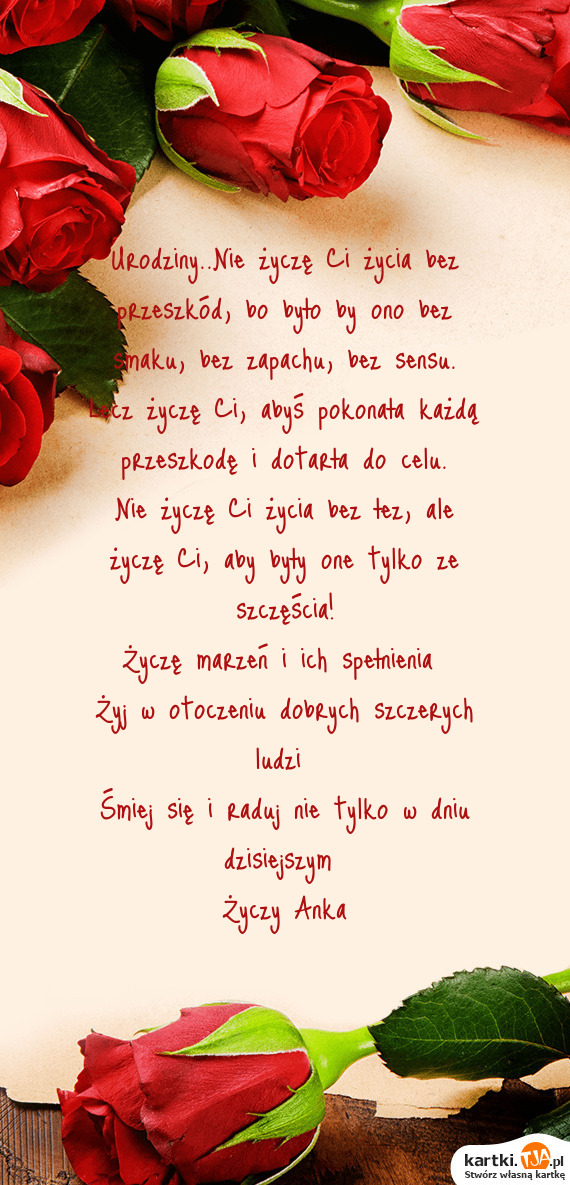 Urodziny..Nie życzę Ci życia bez
przeszkód, bo było by ono bez
smaku, bez zapachu, bez sensu.
Lecz życzę Ci, abyś pokonała każdą
przeszkodę i dotarła do celu.
Nie życzę Ci życia bez łez, ale
życzę Ci, aby były one tylko ze
szczęścia!
Życzę marzeń i ich spełnienia
Żyj w otoczeniu dobrych szczerych
ludzi
Śmiej się i raduj nie tylko w dniu
dzisiejszym
Życzy Anka
kartki.TJA.pl
Stwórz własną kartkę